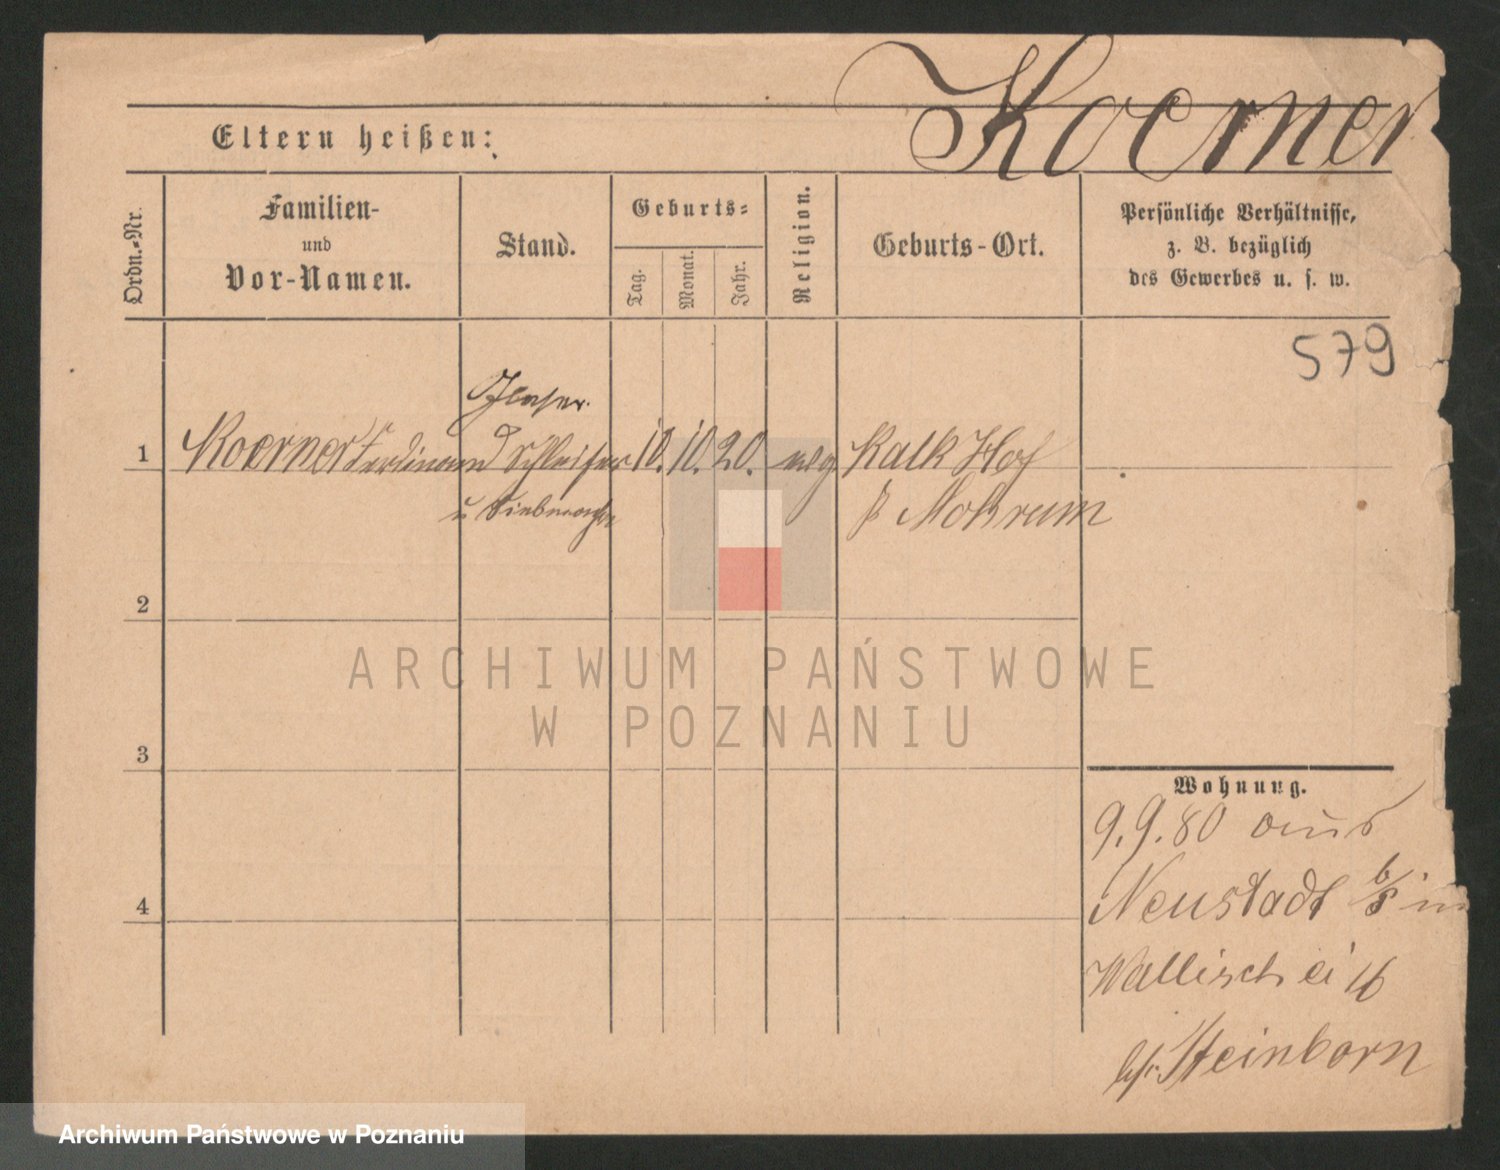 Koerner
Eltern heißen:
Ordn.-Nr.
Familien-
und
Vor-Namen.
Stand.
Geburts-
Tag.
Monat.
Jahr.
Religion.
Geburts-Ort.
Persönliche Verhältnisse,
z. B. bezüglich
des Gewerbes u. s. w.
579
1 Koerner Ferdinand Schleifer 10. 10. 20. Kalk Hof
u Siebmacher
Mohrum
2
ARCHIWUM PAŃSTWOWE
W POZNANIU
3
Wohnung.
9.9.80 aus
4
Neustadt b/ in
Wallischei 16
Steinborn
Archiwum Państwowe w Poznaniu